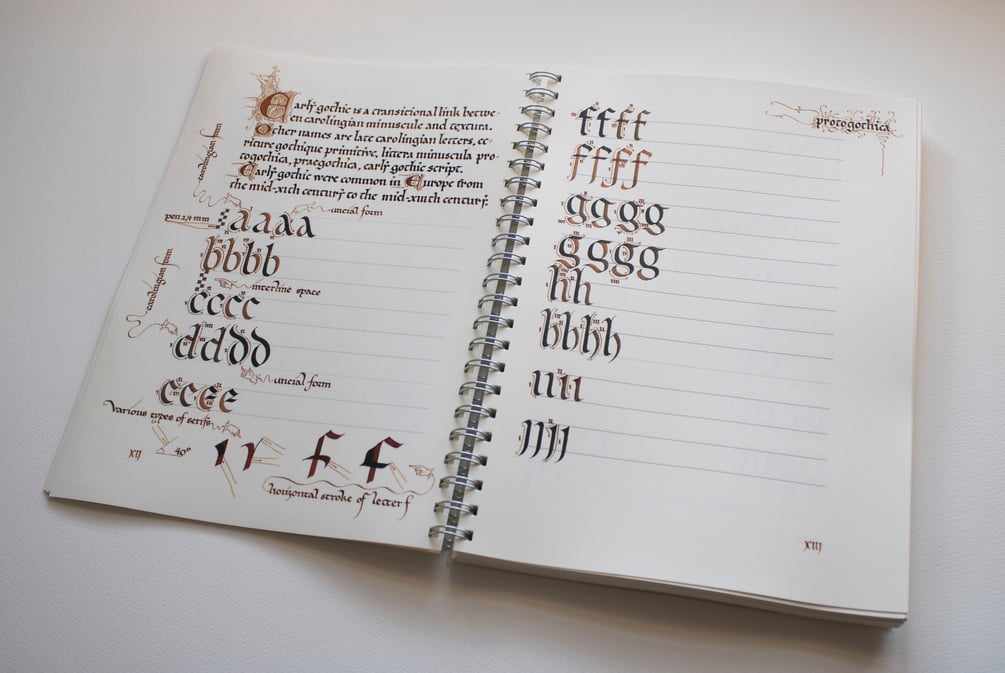 Early gothic is a transitional link betwe-
en carolingian minuscule and textura.
Other names are late carolingian letters, ec-
riture gothique primitive, littera minuscula pro-
togothica, praegothica, early gothic script.
Early gothic were common in Europe from
the mid-xith century to the mid-xiiith century.
carolingian form
uncial form
pen 2,4 mm
aaaa
bbbb
interline space
carolingian form
cccc
dddd
uncial form
eeee
various types of serifs
40°
f f
horizontal stroke of letter f
xij
protogothica
ffff
ffff
gggg
gggg
hh
hhhh
iiii
jjjj
xiij